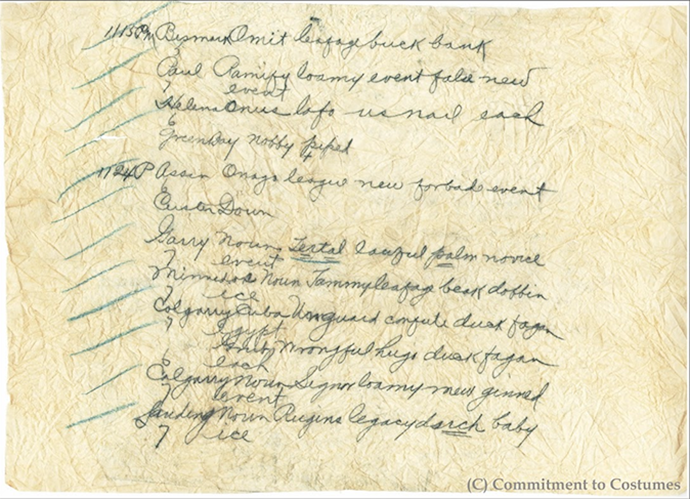 1113PM Bismark Omit leafage buck bank
6
Paul Ramify loamy event false new
7 event
Helena Onus lofo us nail each
6
Green Bay nobby piped
1124 P Assin Onago league new forbade event
6
Custer Down
Garry Noun Tertal lawful palm novice
7 event
Minnedos Noun Jammy leafage beak dobbin
7 ice
Calgarry Cuba Unguard confute duck fagan
7 egypt
Grubby Wrongful hugo duck fagan
6 each
Calgarry Noun Signor loamy mew ginned
7 event
Landing Noun Rugins legacy duck baby
7 ice
(C) Commitment to Costumes